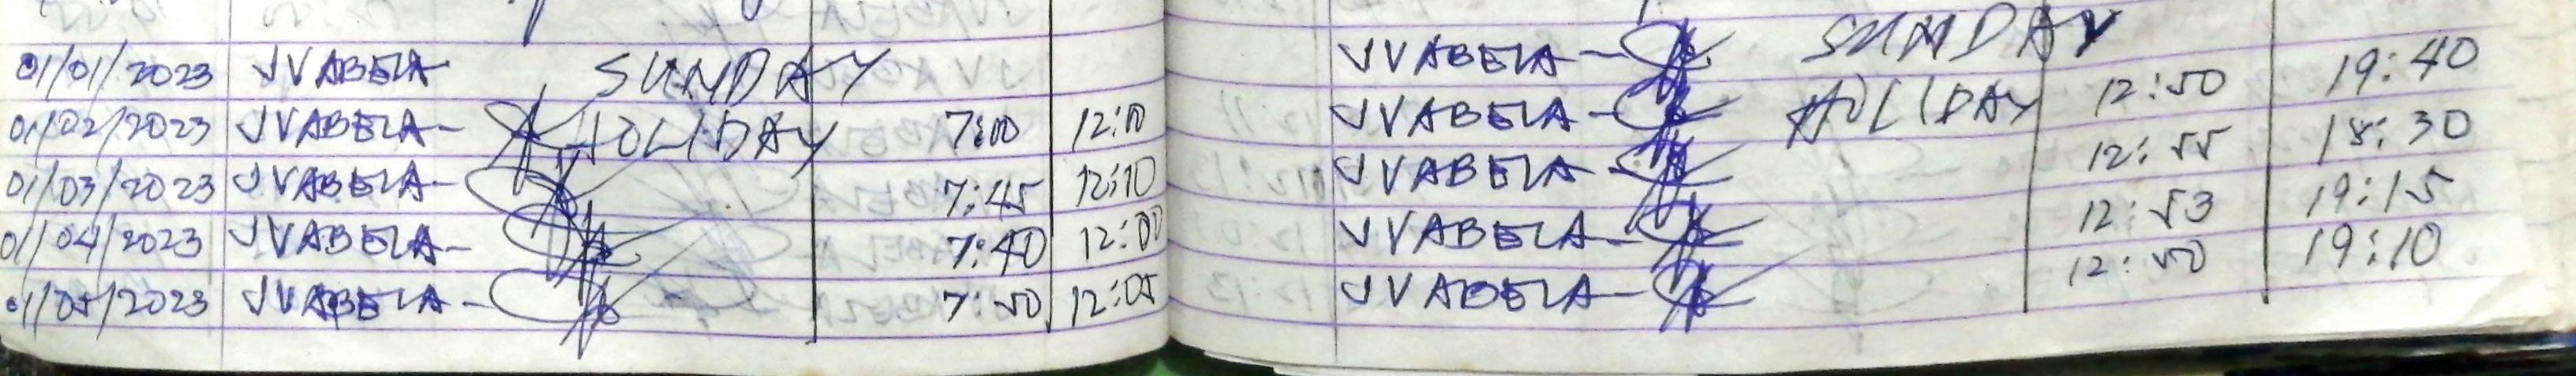 01/01/2023 JVABELA SUNDAY
01/02/2023 JVABELA- HOLIDAY 7:00 12:10
01/03/2023 JVABELA- 7:45 12:10
01/04/2023 JVABELA- 7:40 12:00
01/05/2023 JVABELA- 7:50 12:05
JVABELA- SUNDAY
JVABELA- HOLIDAY 12:50 19:40
JVABELA- 12:55 18:30
JVABELA- 12:53 19:15
JVABELA- 12:50 19:10